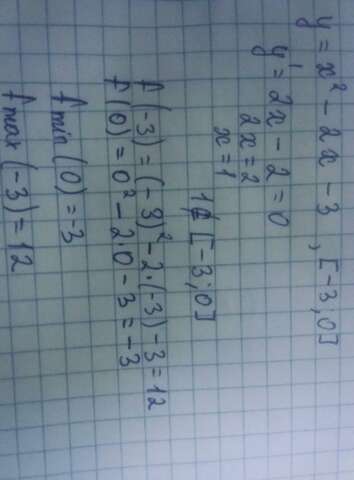 y = x² - 2x - 3, [-3;0]
y' = 2x - 2 = 0
2x = 2
x = 1
1∉[-3;0]
f(-3) = (-3)² - 2·(-3) - 3 = 12
f(0) = 0² - 2·0 - 3 = -3
fmin(0) = -3
fmax(-3) = 12